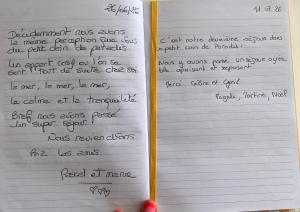 26/06/26
Décidemment nous avons
la même perception que vous
du petit coin de paradis.
Un appart cosy où l'on se
sent tout de suite chez soi
la mer, la mer, la mer,
le calme et la tranquillité
Bref nous avons passé
un super séjour
Nous reviendrons.
Biz les amis
Pascal et marie
11.07.26
C'est notre deuxième séjour dans
ce petit coin de Paradis!
Nous y avons passé un séjour agréable
apaisant et reposant.
Merci Cédric et Cyril
Magalie, Martine, Noël